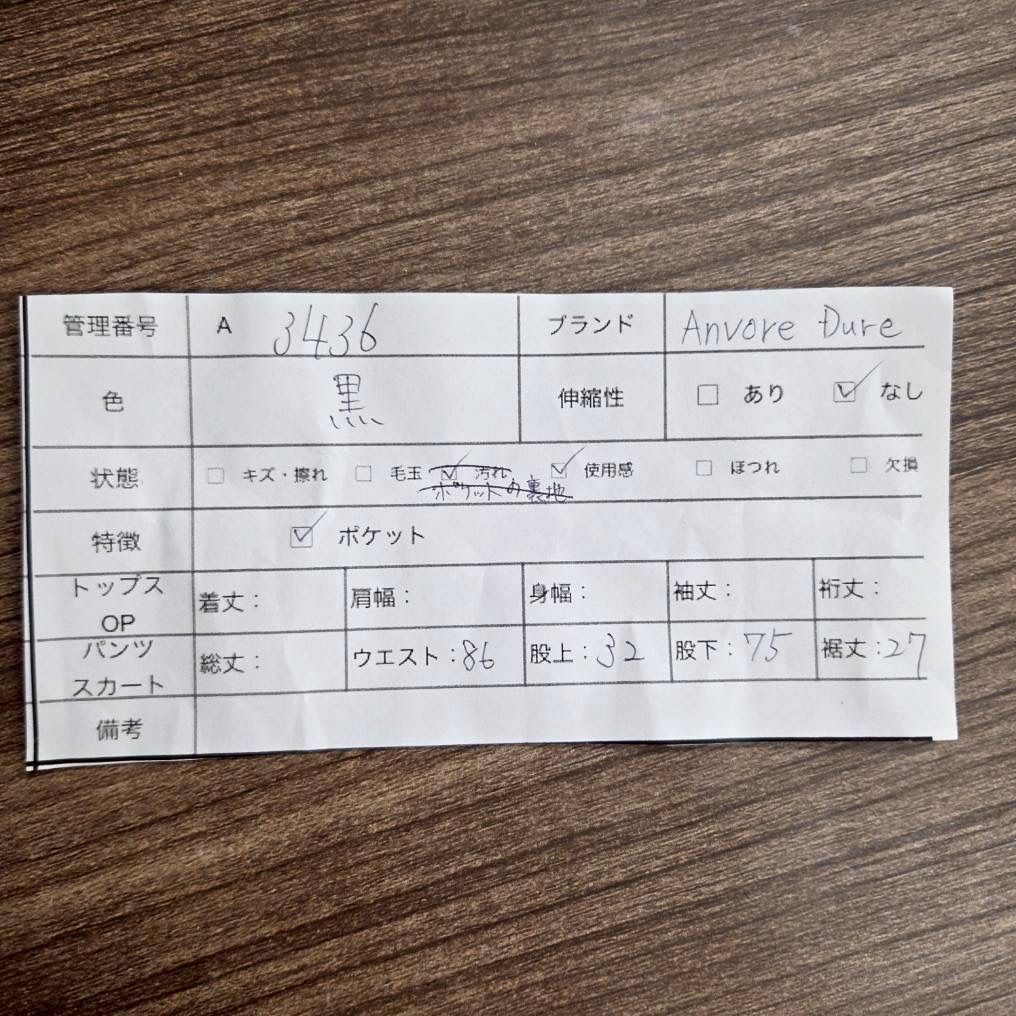 管理番号 A 3436 ブランド Anvore Dure
色 黒 伸縮性 □ あり ☑ なし
状態 □ キズ・擦れ □ 毛玉 ☑ 汚れ ☑ 使用感 □ ほつれ □ 欠損
ポケットの裏地
特徴 ☑ ポケット
トップス OP 着丈: 肩幅: 身幅: 袖丈: 裄丈:
パンツ スカート 総丈: ウエスト:86 股上:32 股下:75 裾丈:27
備考